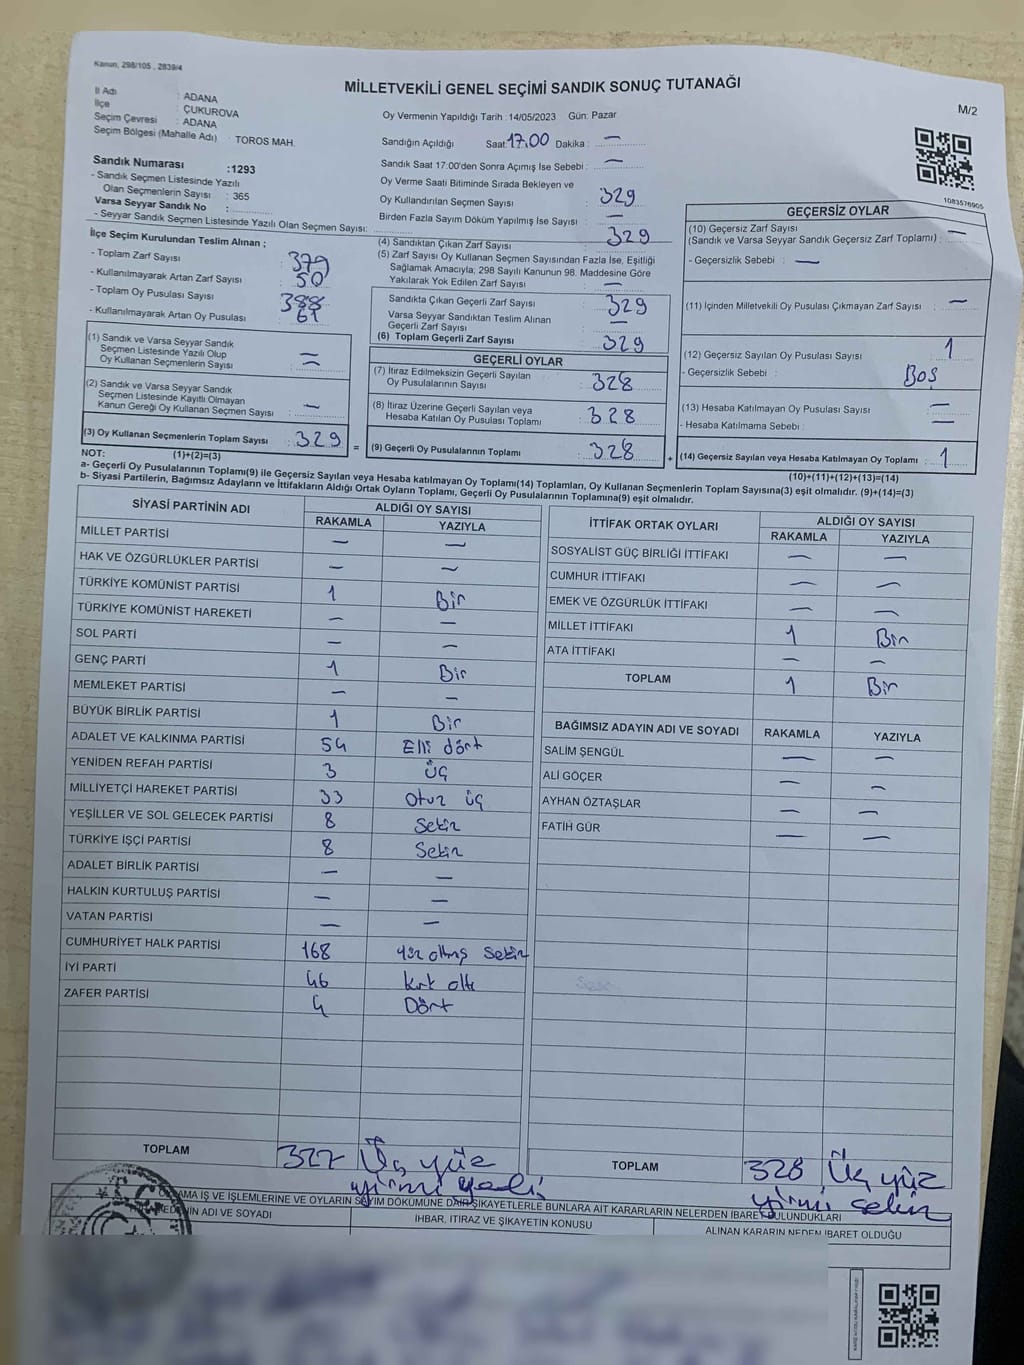 Kanun, 298/105 , 2839/4
MİLLETVEKİLİ GENEL SEÇİMİ SANDIK SONUÇ TUTANAĞI
M/2
İl Adı : ADANA
İlçe : ÇUKUROVA
Seçim Çevresi : ADANA
Seçim Bölgesi (Mahalle Adı) : TOROS MAH.
Sandık Numarası :1293
- Sandık Seçmen Listesinde Yazılı
Olan Seçmenlerin Sayısı : 365
Varsa Seyyar Sandık No :
- Seyyar Sandık Seçmen Listesinde Yazılı Olan Seçmen Sayısı:
Oy Vermenin Yapıldığı Tarih : 14/05/2023 Gün: Pazar
Sandığın Açıldığı Saat:17.00 Dakika : —
Sandık Saat 17:00'den Sonra Açımış İse Sebebi : —
Oy Verme Saati Bitiminde Sırada Bekleyen ve
Oy Kullandırılan Seçmen Sayısı 329
Birden Fazla Sayım Döküm Yapılmış İse Sayısı : —
1083576905
İlçe Seçim Kurulundan Teslim Alınan ;
- Toplam Zarf Sayısı : 379
- Kullanılmayarak Artan Zarf Sayısı : 50
- Toplam Oy Pusulası Sayısı : 388
- Kullanılmayarak Artan Oy Pusulası : 61
(1) Sandık ve Varsa Seyyar Sandık
Seçmen Listesinde Yazılı Olup
Oy Kullanan Seçmenlerin Sayısı : =
(2) Sandık ve Varsa Seyyar Sandık
Seçmen Listesinde Kayıtlı Olmayan
Kanun Gereği Oy Kullanan Seçmen Sayısı : —
(3) Oy Kullanan Seçmenlerin Toplam Sayısı : 329 =
(4) Sandıktan Çıkan Zarf Sayısı : 329
(5) Zarf Sayısı Oy Kullanan Seçmen Sayısından Fazla İse, Eşitliği
Sağlamak Amacıyla; 298 Sayılı Kanunun 98. Maddesine Göre
Yakılarak Yok Edilen Zarf Sayısı : —
Sandıkta Çıkan Geçerli Zarf Sayısı : 329
Varsa Seyyar Sandıktan Teslim Alınan
Geçerli Zarf Sayısı : —
(6) Toplam Geçerli Zarf Sayısı : 329
GEÇERLİ OYLAR
(7) İtiraz Edilmeksizin Geçerli Sayılan
Oy Pusulalarının Sayısı : 328
(8) İtiraz Üzerine Geçerli Sayılan veya
Hesaba Katılan Oy Pusulası Toplamı : 328
(9) Geçerli Oy Pusulalarının Toplamı : 328 +
GEÇERSİZ OYLAR
(10) Geçersiz Zarf Sayısı
(Sandık ve Varsa Seyyar Sandık Geçersiz Zarf Toplamı) : —
- Geçersizlik Sebebi : —
(11) İçinden Milletvekili Oy Pusulası Çıkmayan Zarf Sayısı : —
(12) Geçersiz Sayılan Oy Pusulası Sayısı : 1
- Geçersizlik Sebebi : Boş
(13) Hesaba Katılmayan Oy Pusulası Sayısı : —
- Hesaba Katılmama Sebebi : —
(14) Geçersiz Sayılan veya Hesaba Katılmayan Oy Toplamı : 1
NOT: (1)+(2)=(3)
(10)+(11)+(12)+(13)=(14)
a- Geçerli Oy Pusulalarının Toplamı(9) ile Geçersiz Sayılan veya Hesaba katılmayan Oy Toplamı(14) Toplamları, Oy Kullanan Seçmenlerin Toplam Sayısına(3) eşit olmalıdır. (9)+(14)=(3)
b- Siyasi Partilerin, Bağımsız Adayların ve İttifakların Aldığı Ortak Oyların Toplamı, Geçerli Oy Pusulalarının Toplamına(9) eşit olmalıdır.
SİYASİ PARTİNİN ADI ALDIĞI OY SAYISI
RAKAMLA YAZIYLA
MİLLET PARTİSİ — —
HAK VE ÖZGÜRLÜKLER PARTİSİ — —
TÜRKİYE KOMÜNİST PARTİSİ 1 Bir
TÜRKİYE KOMÜNİST HAREKETİ — —
SOL PARTİ — —
GENÇ PARTİ 1 Bir
MEMLEKET PARTİSİ — —
BÜYÜK BİRLİK PARTİSİ 1 Bir
ADALET VE KALKINMA PARTİSİ 54 Elli dört
YENİDEN REFAH PARTİSİ 3 Üç
MİLLİYETÇİ HAREKET PARTİSİ 33 Otuz üç
YEŞİLLER VE SOL GELECEK PARTİSİ 8 Sekiz
TÜRKİYE İŞÇİ PARTİSİ 8 Sekiz
ADALET BİRLİK PARTİSİ — —
HALKIN KURTULUŞ PARTİSİ — —
VATAN PARTİSİ — —
CUMHURİYET HALK PARTİSİ 168 yüz altmış sekiz
İYİ PARTİ 46 kırk altı
ZAFER PARTİSİ 4 Dört
TOPLAM 327 Üç yüz
yirmi yedi
İTTİFAK ORTAK OYLARI ALDIĞI OY SAYISI
RAKAMLA YAZIYLA
SOSYALİST GÜÇ BİRLİĞİ İTTİFAKI — —
CUMHUR İTTİFAKI — —
EMEK VE ÖZGÜRLÜK İTTİFAKI — —
MİLLET İTTİFAKI 1 Bir
ATA İTTİFAKI — —
TOPLAM 1 Bir
BAĞIMSIZ ADAYIN ADI VE SOYADI RAKAMLA YAZIYLA
SALİM ŞENGÜL — —
ALİ GÖÇER — —
AYHAN ÖZTAŞLAR — —
FATİH GÜR — —
TOPLAM 328 Üç yüz
yirmi sekiz
AMA İŞ VE İŞLEMLERİNE VE OYLARIN SAYIM DÖKÜMÜNE DAİR ŞİKAYETLERLE BUNLARA AİT KARARLARIN NELERDEN İBARET BULUNDUKLARI
İN ADI VE SOYADI
İHBAR, İTİRAZ VE ŞİKAYETİN KONUSU
ALINAN KARARIN NEDEN İBARET OLDUĞU